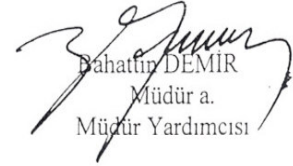 Bahattin DEMİR
Müdür a.
Müdür Yardımcısı